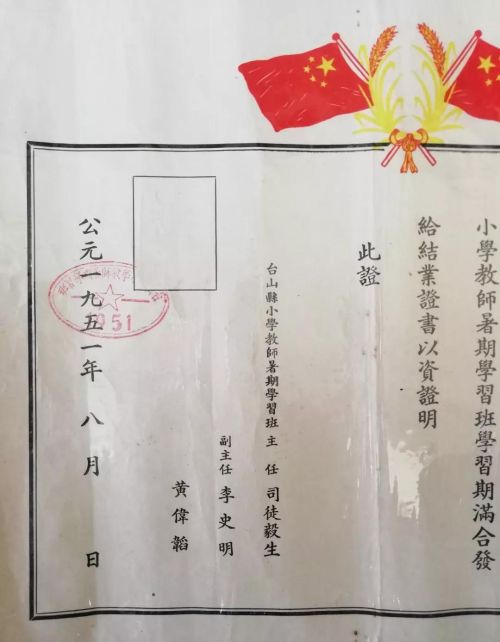 小學教師暑期學習班學習期滿合發
給結業證書以資證明
此證
台山縣小學教師暑期學習班主任司徒毅生
副主任李史明
黃偉韜
公元一九五一年八月 日
1951